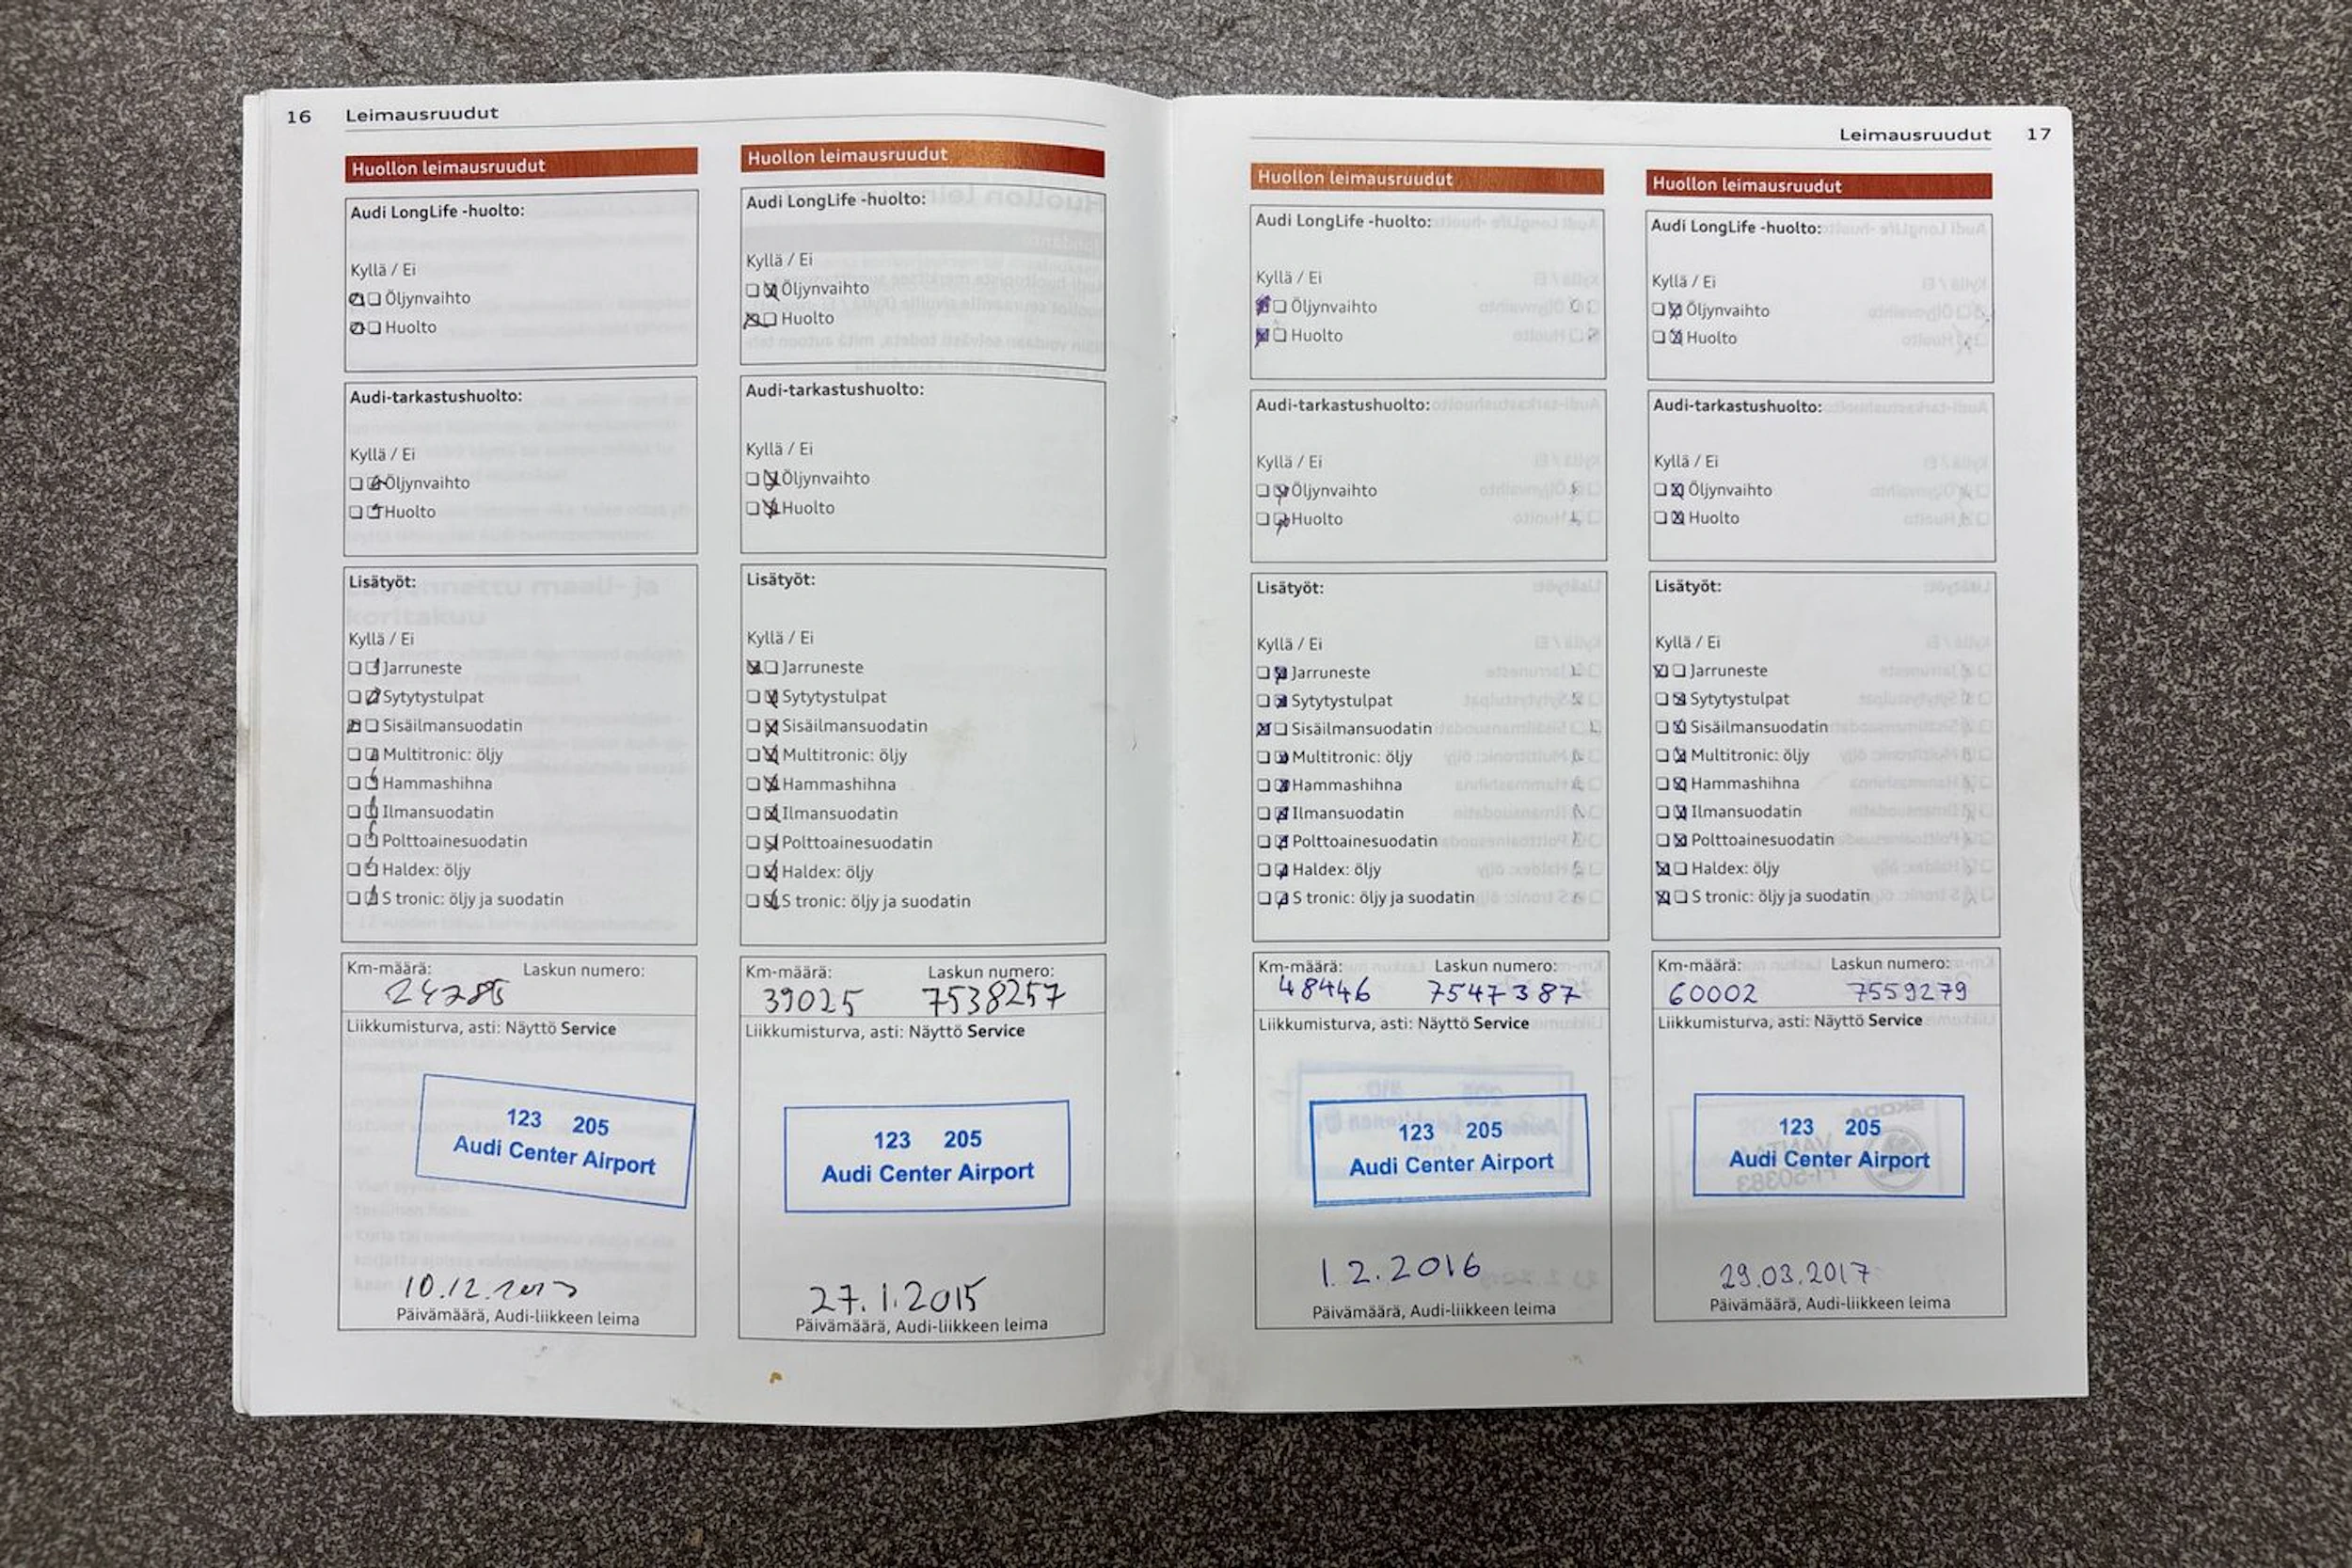 16 Leimausruudut
Huollon leimausruudut
Audi LongLife -huolto:
Kyllä / Ei
Öljynvaihto
Huolto
Audi-tarkastushuolto:
Kyllä / Ei
Öljynvaihto
Huolto
Lisätyöt:
Kyllä / Ei
Jarruneste
Sytytystulpat
Sisäilmansuodatin
Multitronic: öljy
Hammashihna
Ilmansuodatin
Polttoainesuodatin
Haldex: öljy
S tronic: öljy ja suodatin
Km-määrä: Laskun numero:
24785
Liikkumisturva, asti: Näyttö Service
123 205
Audi Center Airport
10.12.2013
Päivämäärä, Audi-liikkeen leima
Huollon leimausruudut
Audi LongLife -huolto:
Kyllä / Ei
Öljynvaihto
Huolto
Audi-tarkastushuolto:
Kyllä / Ei
Öljynvaihto
Huolto
Lisätyöt:
Kyllä / Ei
Jarruneste
Sytytystulpat
Sisäilmansuodatin
Multitronic: öljy
Hammashihna
Ilmansuodatin
Polttoainesuodatin
Haldex: öljy
S tronic: öljy ja suodatin
Km-määrä: Laskun numero:
39025 7538257
Liikkumisturva, asti: Näyttö Service
123 205
Audi Center Airport
27.1.2015
Päivämäärä, Audi-liikkeen leima
Leimausruudut 17
Huollon leimausruudut
Audi LongLife -huolto:
Kyllä / Ei
Öljynvaihto
Huolto
Audi-tarkastushuolto:
Kyllä / Ei
Öljynvaihto
Huolto
Lisätyöt:
Kyllä / Ei
Jarruneste
Sytytystulpat
Sisäilmansuodatin
Multitronic: öljy
Hammashihna
Ilmansuodatin
Polttoainesuodatin
Haldex: öljy
S tronic: öljy ja suodatin
Km-määrä: Laskun numero:
48446 7547387
Liikkumisturva, asti: Näyttö Service
123 205
Audi Center Airport
1.2.2016
Päivämäärä, Audi-liikkeen leima
Huollon leimausruudut
Audi LongLife -huolto:
Kyllä / Ei
Öljynvaihto
Huolto
Audi-tarkastushuolto:
Kyllä / Ei
Öljynvaihto
Huolto
Lisätyöt:
Kyllä / Ei
Jarruneste
Sytytystulpat
Sisäilmansuodatin
Multitronic: öljy
Hammashihna
Ilmansuodatin
Polttoainesuodatin
Haldex: öljy
S tronic: öljy ja suodatin
Km-määrä: Laskun numero:
60002 7559279
Liikkumisturva, asti: Näyttö Service
123 205
Audi Center Airport
29.03.2017
Päivämäärä, Audi-liikkeen leima